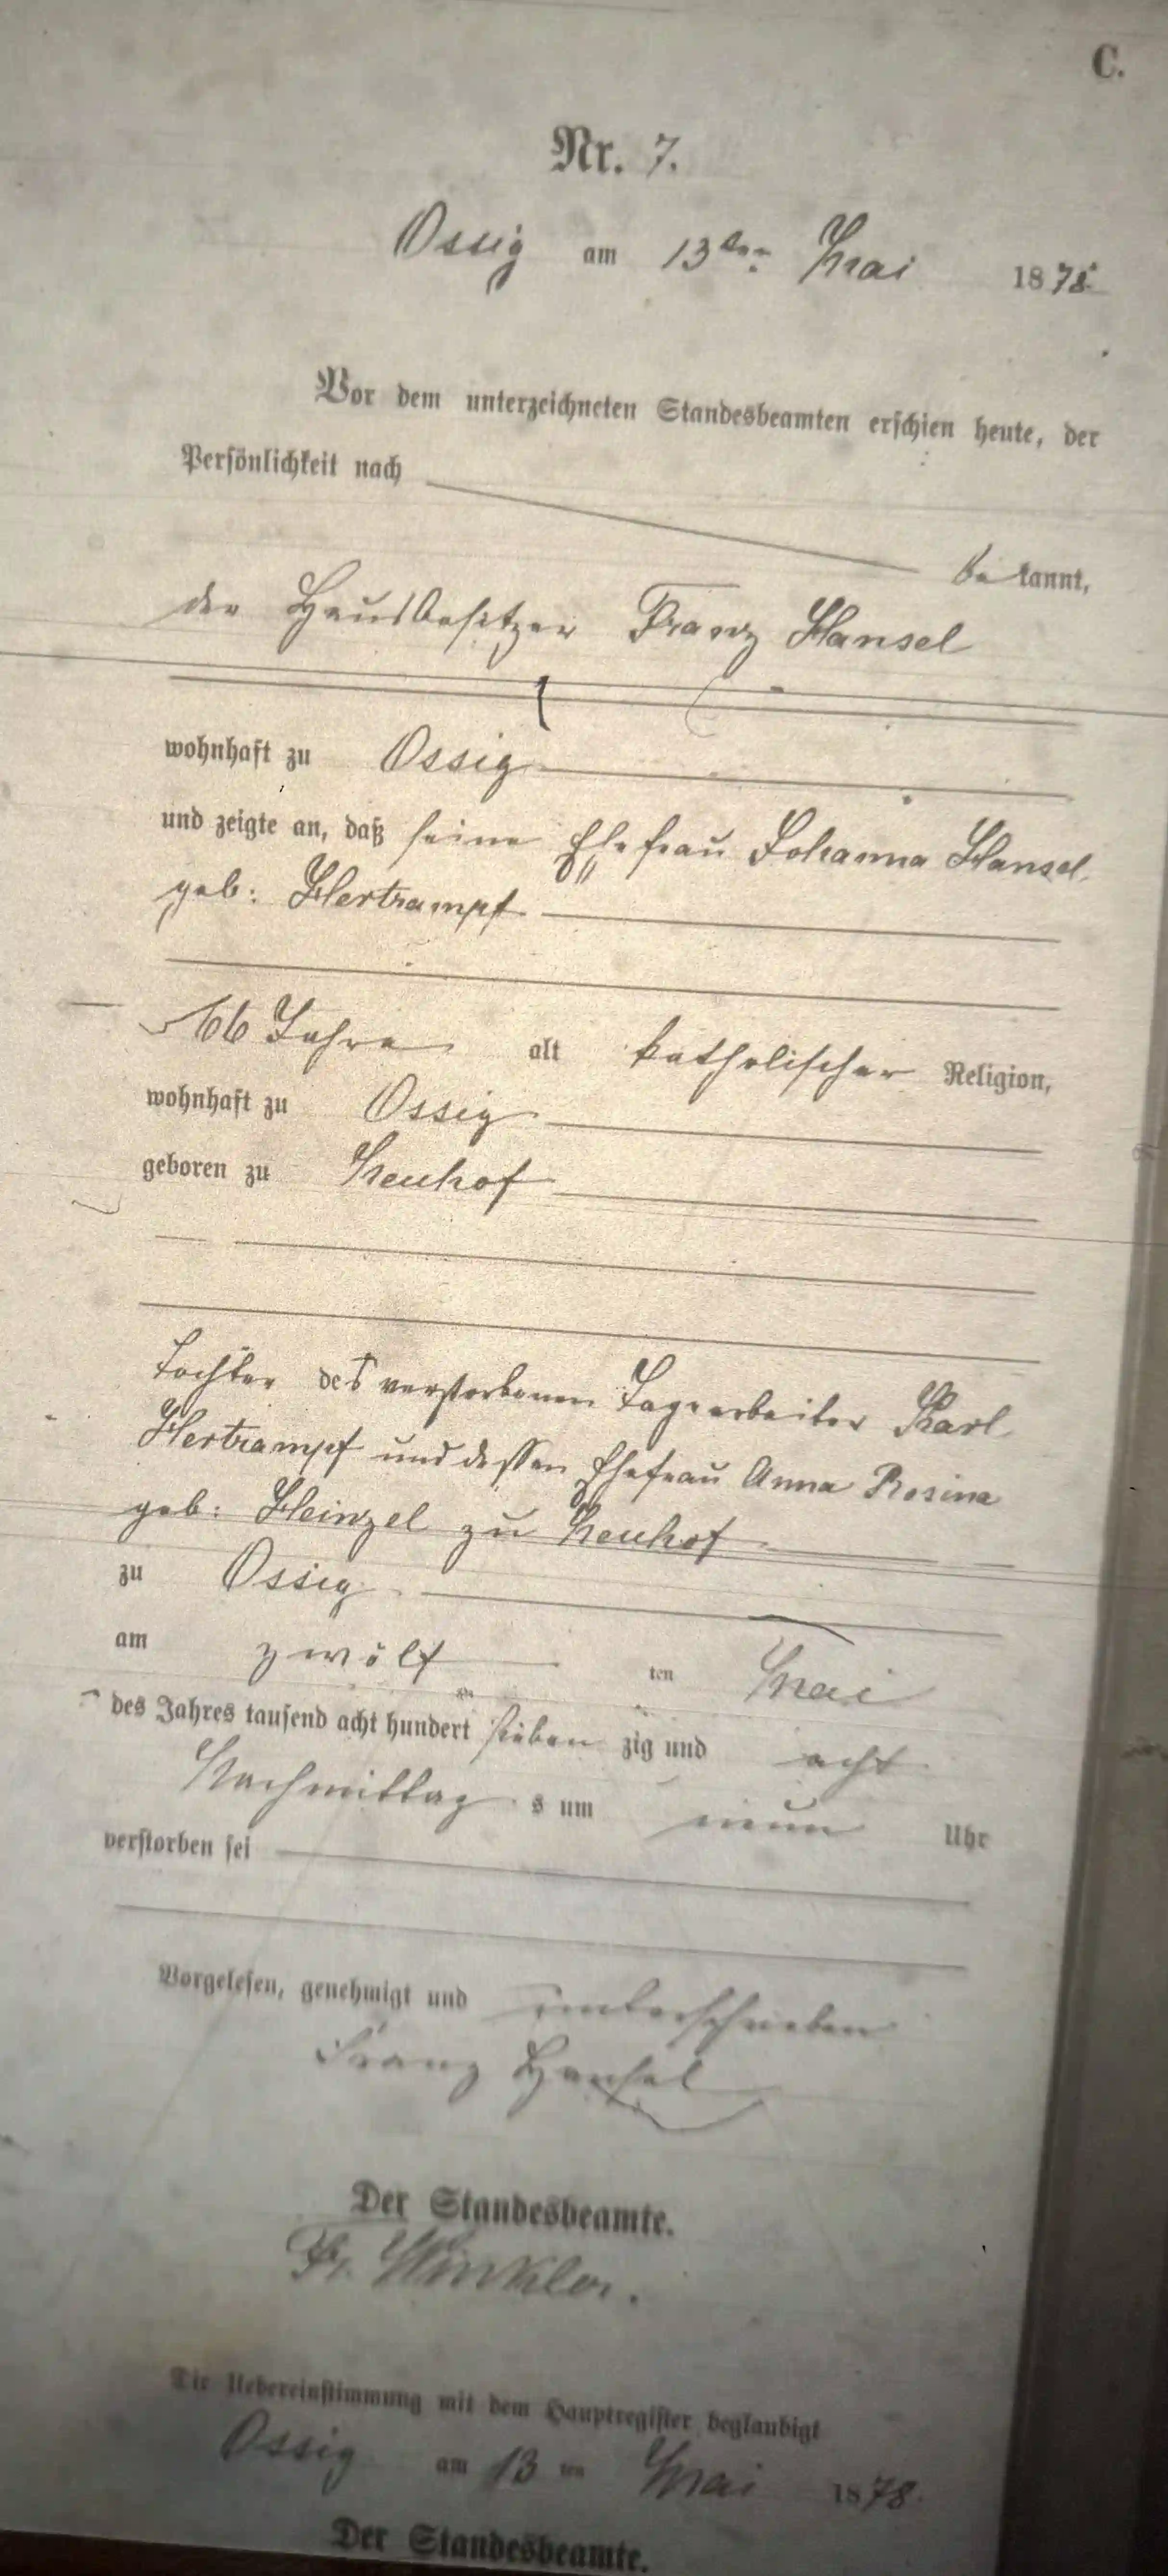 C.
Nr. 7.
Ossig am 13ten Mai 1878
Vor dem unterzeichneten Standesbeamten erschien heute, der
Persönlichkeit nach
be kannt,
der Hausbesitzer Franz Hansel
wohnhaft zu Ossig
und zeigte an, daß seine Ehefrau Johanna Hansel
geb: Hertrampf
66 Jahre alt katholischer Religion,
wohnhaft zu Ossig
geboren zu Neuhof
Tochter des verstorbenen Tagearbeiter Karl
Hertrampf und dessen Ehefrau Anna Rosina
geb: Heinzel zu Neuhof
zu Ossig
am zwölf ten Mai
des Jahres tausend acht hundert sieben zig und acht
Nachmittag s um neun Uhr
verstorben sei
Vorgelesen, genehmigt und unterschrieben
Franz Hansel
Der Standesbeamte.
Fr. Winkler.
Die Uebereinstimmung mit dem Hauptregister beglaubigt
Ossig am 13 ten Mai 1878.
Der Standesbeamte.